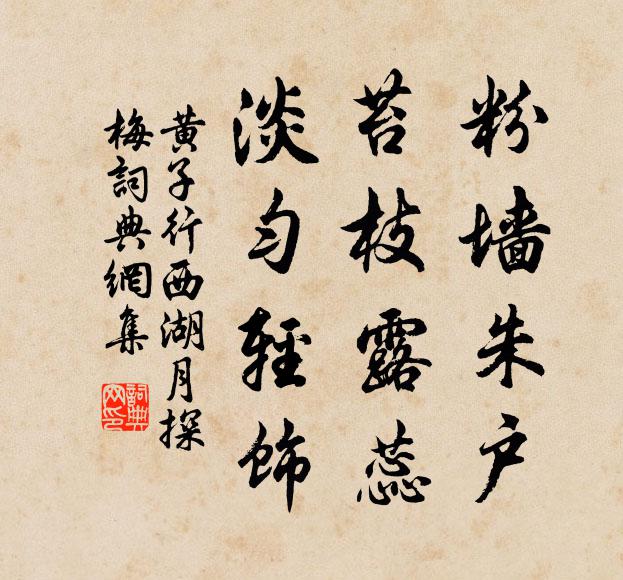 粉墙朱户
苔枝露蕊
淡匀輕饰
黄子行西湖月探
梅詞典網集
詞典网印